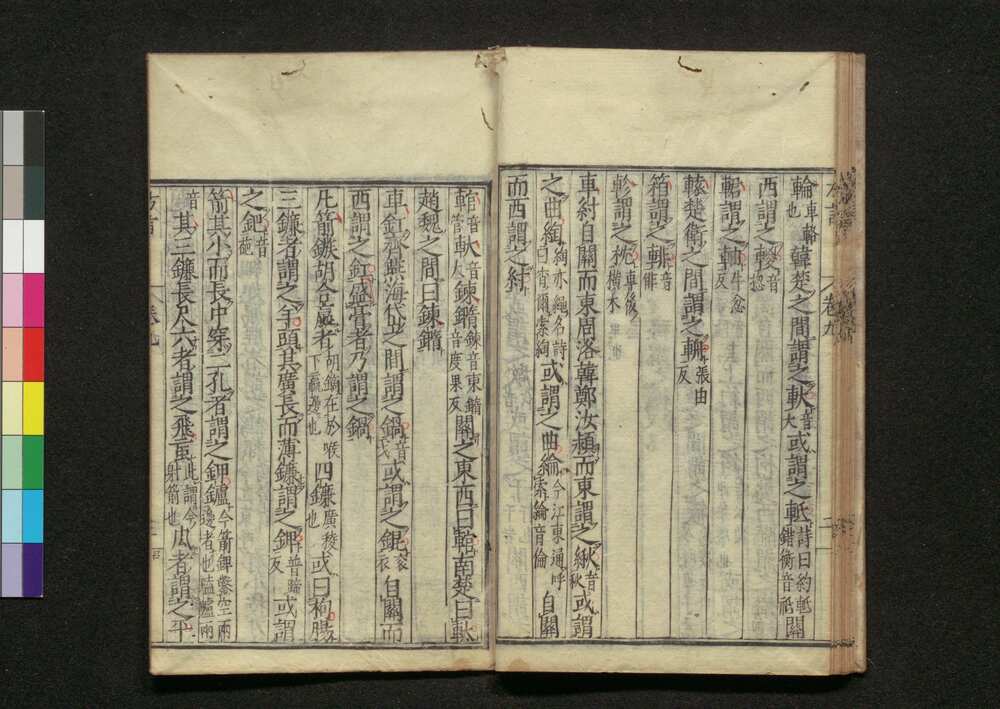 輪車輅也韓楚之間謂之軑音大或謂之軝詩曰約軝錯衡音祗關
西謂之𨌰音摠
輑謂之軸牛忿反
轅楚衛之間謂之輈張由反
箱謂之輫音俳
軫謂之枕車後橫木
車紂自關而東周洛韓鄭汝潁而東謂之䋺音秋或謂
之曲綯綯亦繩名詩曰宵爾索綯或謂之曲綸今江東通呼索綸音倫自關
而西謂之紂
輨音管軑音大鍊鐗鍊音東鐗音度果反關之東西曰輨南楚曰軑
趙魏之間曰鍊鐗
車釭齊燕海岱之間謂之鍋音戈或謂之錕衮衣自關而
西謂之釭盛膏者乃謂之鍋
凡箭鏃胡合嬴者胡鏑在於喉下嬴邊也四鐮廣稜也或曰拘腸
三鐮者謂之羊頭其廣長而薄鐮謂之錍普蹄反或謂
之鈀音葩
箭其小而長中穿二孔者謂之鉀鑪今箭錍鑿空兩邊者也嗑嚧兩
音其三鐮長尺六者謂之飛䖟此謂今射箭也內者謂之平